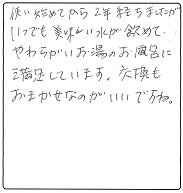 使い始めてから2年経ちましたが
いつでも美味しい水が飲めて‥
やわらかいお湯のお風呂に
満足しています。交換も
おまかせなのがいいですね。